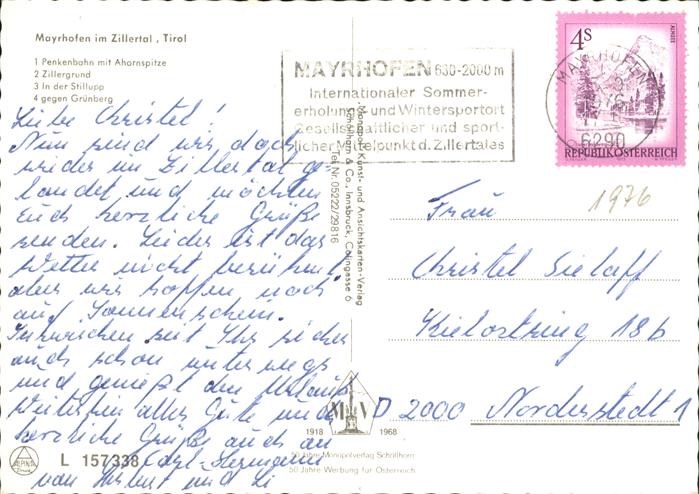 Mayrhofen im Zillertal, Tirol
1 Penkenbahn mit Ahornspitze
2 Zillergrund
3 In der Stillupp
4 gegen Grünberg
Liebe Christel!
Nun sind wir doch
wieder im Zillertal ge-
landet und möchten
Euch herzliche Grüße
senden. Leider ist das
Wetter nicht berühmt,
aber wir hoffen noch
auf Sonnenschein.
Inzwischen seit Ihr sicher
auch schon unterwegs
und genießt den Urlaub
Weiterhin alles Gute und
herzliche Grüße auch an
Karl-Hermann
von und
L 157338
ALPINA
MAYRHOFEN 630-2000m
Internationaler Sommer-
erholungs- und Wintersportort
Gesellschaftlicher und sport-
licher Mittelpunkt d. Zillertales
Monopol Kunst- und Ansichtskarten-Verlag
Schöllhorn & Co., Innsbruck, Colingasse 6
Tel. Nr. 05222/29816
4S
ALMSEE
MAYRHOFEN
6290
REPUBLIK ÖSTERREICH
1976
Frau
Christel Sielaff
Kielortring 18b
D 2000 Norderstedt 1
M V
1918 1968
50 Jahre Monopolverlag Schöllhorn
50 Jahre Werbung für Österreich